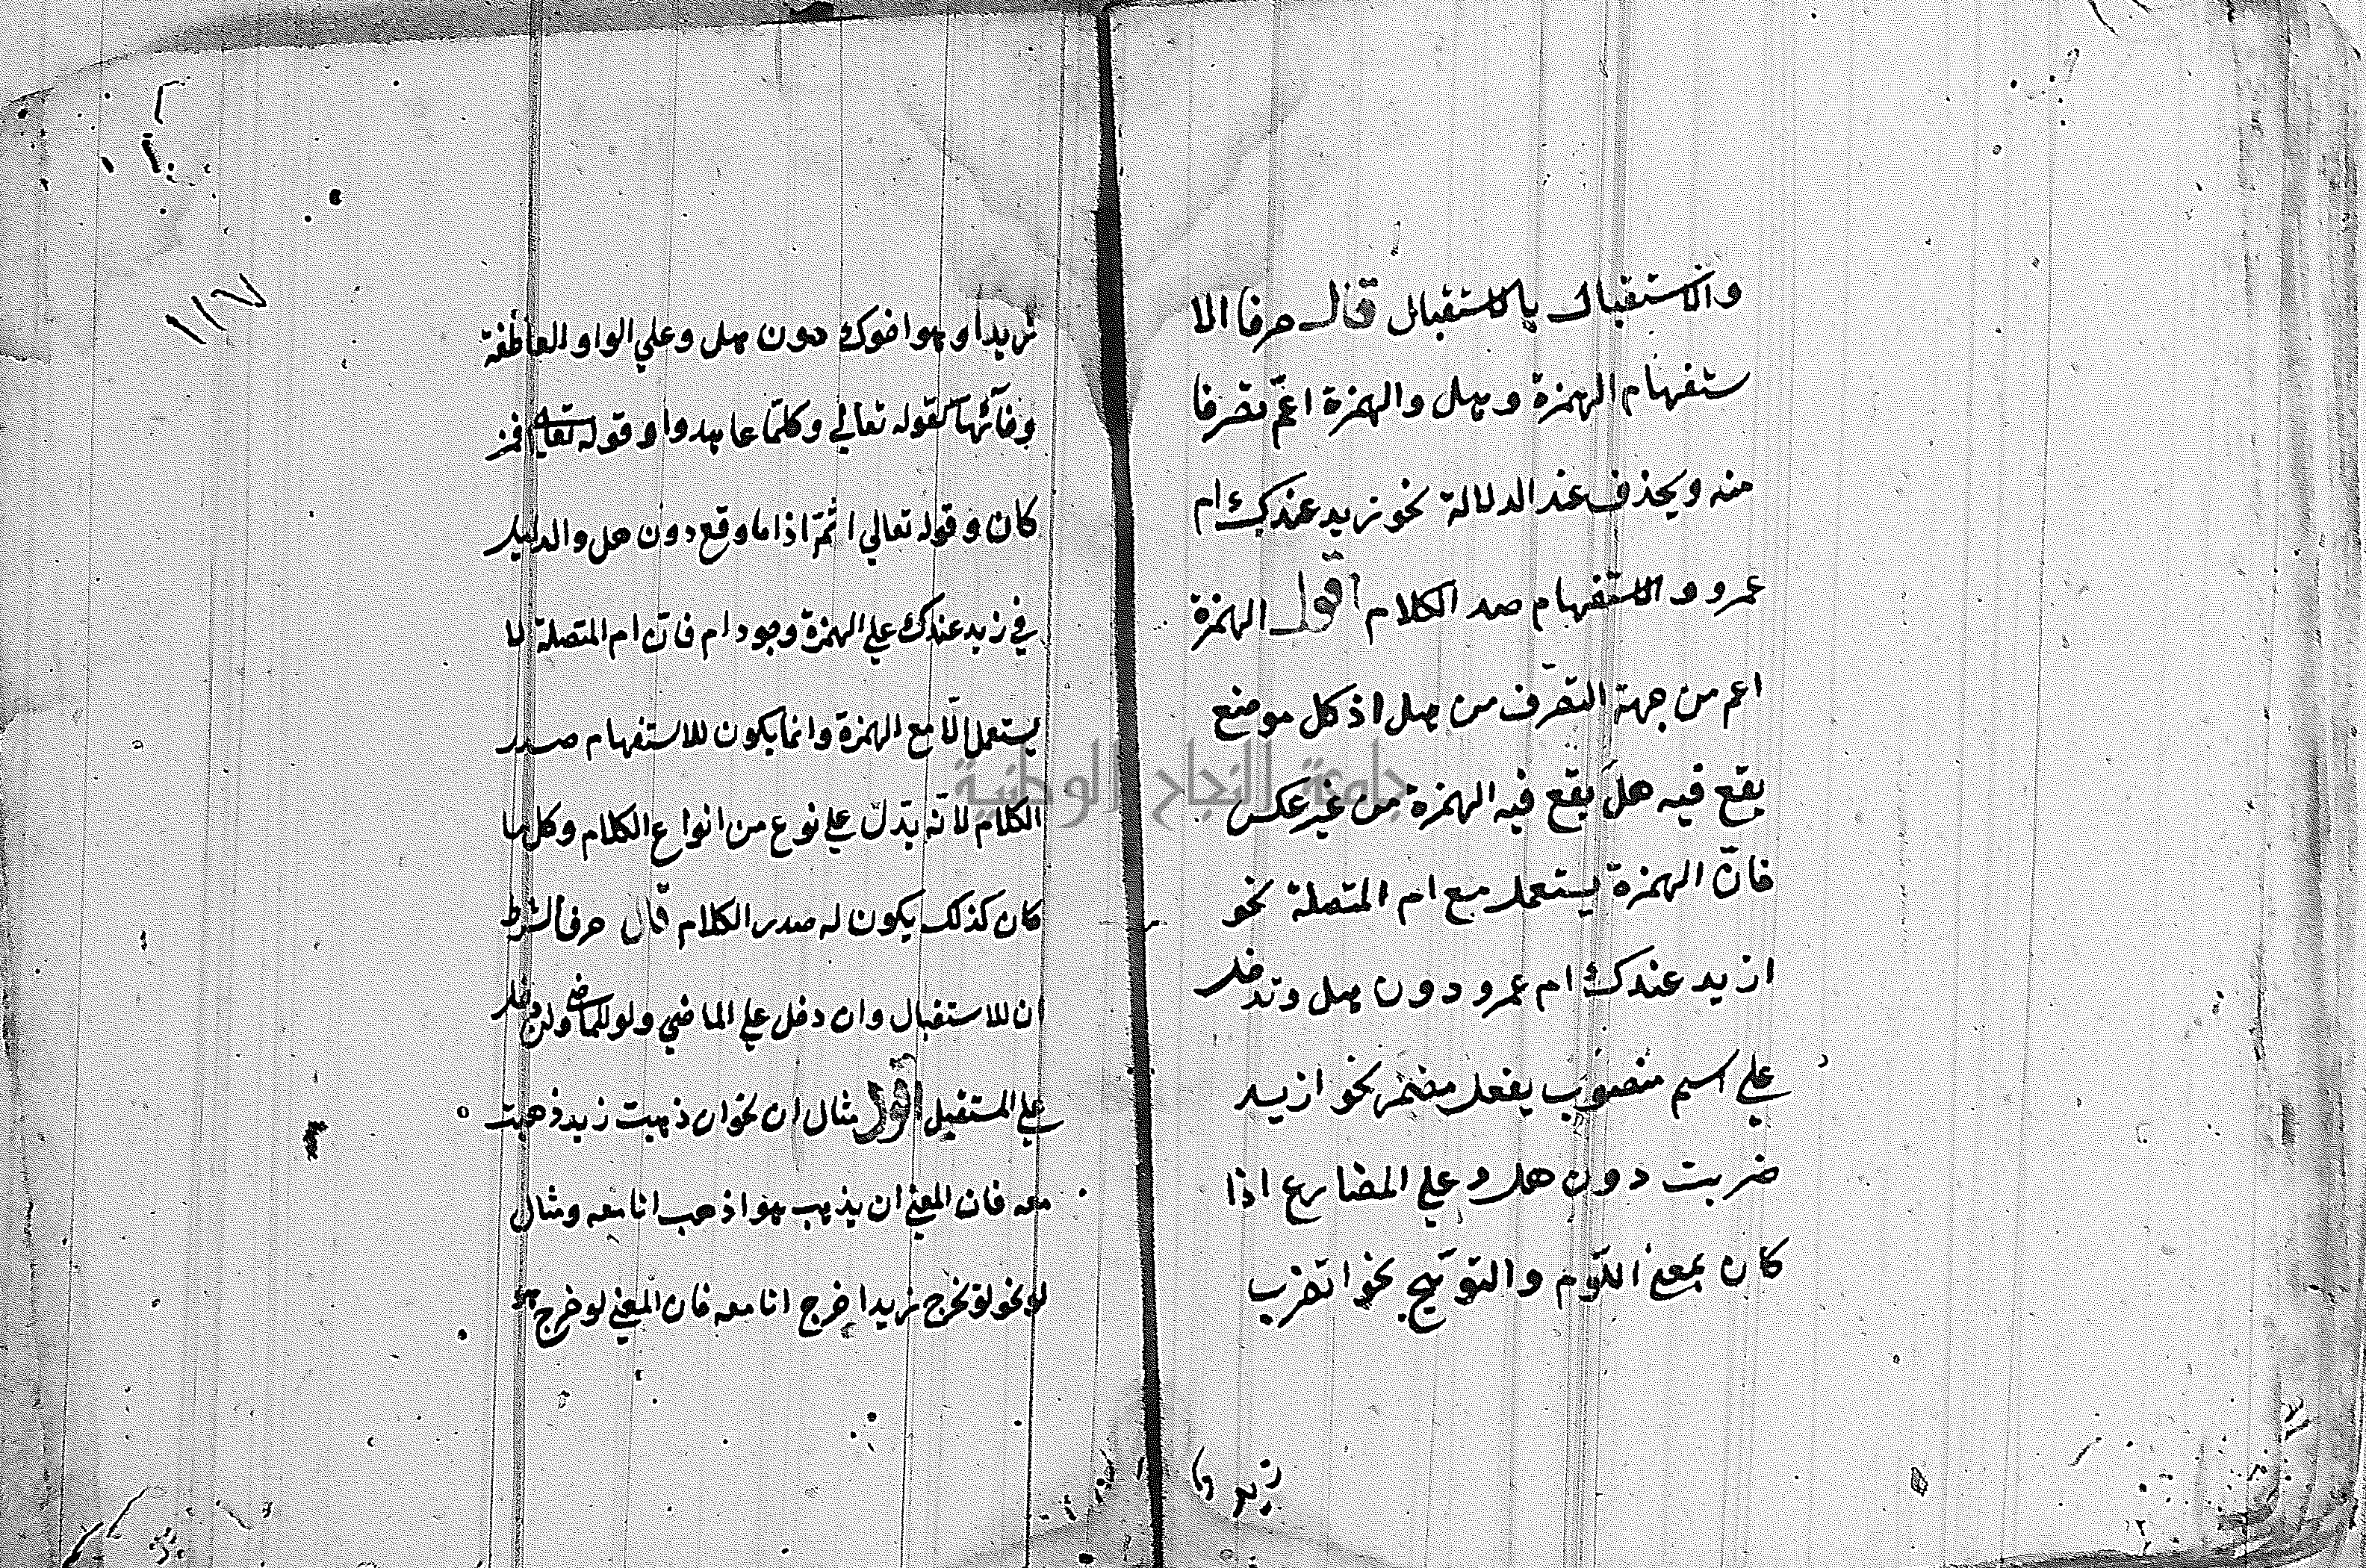 والاستقبال بالاستقبال قال حرفا الا
ستفهام الهمزة وهل والهمزة اعمّ تصرفا
منه ويحذف عند الدلالة نحو زيد عندك ام
عمرو والاستفهام صدر الكلام اقول الهمزة
اعم من جهة التصرّف من هل اذ كل موضع
يقع فيه هل يقع فيه الهمزة من غير عكس
فانّ الهمزة يستعمل مع ام المتصلة نحو
ازيد عندك ام عمرو دون هل وتدخل
علي اسم منصوب بفعل مضمر نحو ازيد
ضربت دون هل وعلي المضارع اذا
كان بمعني اللّوم والتوبّيخ نحو اتضرب
زيدا و
١١٧
زيدا وهو اخوك دون هل وعلي الواو العاطفة
وفائها كقوله تعالي وكلمّا عاهدوا وقوله تعالي افمن
كان وقوله تعالي اثمّ اذا ما وقع دون هل والدليل
في زيد عندك علي الهمزة وجود ام فانّ ام المتصلة لا
يستعمل الّا مع الهمزة وانما يكون للاستفهام صدر
الكلام لانّه يدّل علي نوع من انواع الكلام وكل ما
كان كذلك يكون له صدر الكلام قال حرفا الشرط
ان للاستقبال وان دخل علي الماضي ولو للماضي ولو دخل
علي المستقبل اقول مثال ان نحو ان ذهبت زيد ذهبت
معه فان المعني ان يذهب هو اذهب انا معه ومثال
لو نحو لو تخرج زيد اخرج انا معه فان المعني لو خرج هو
جامعة النجاح الوطنية